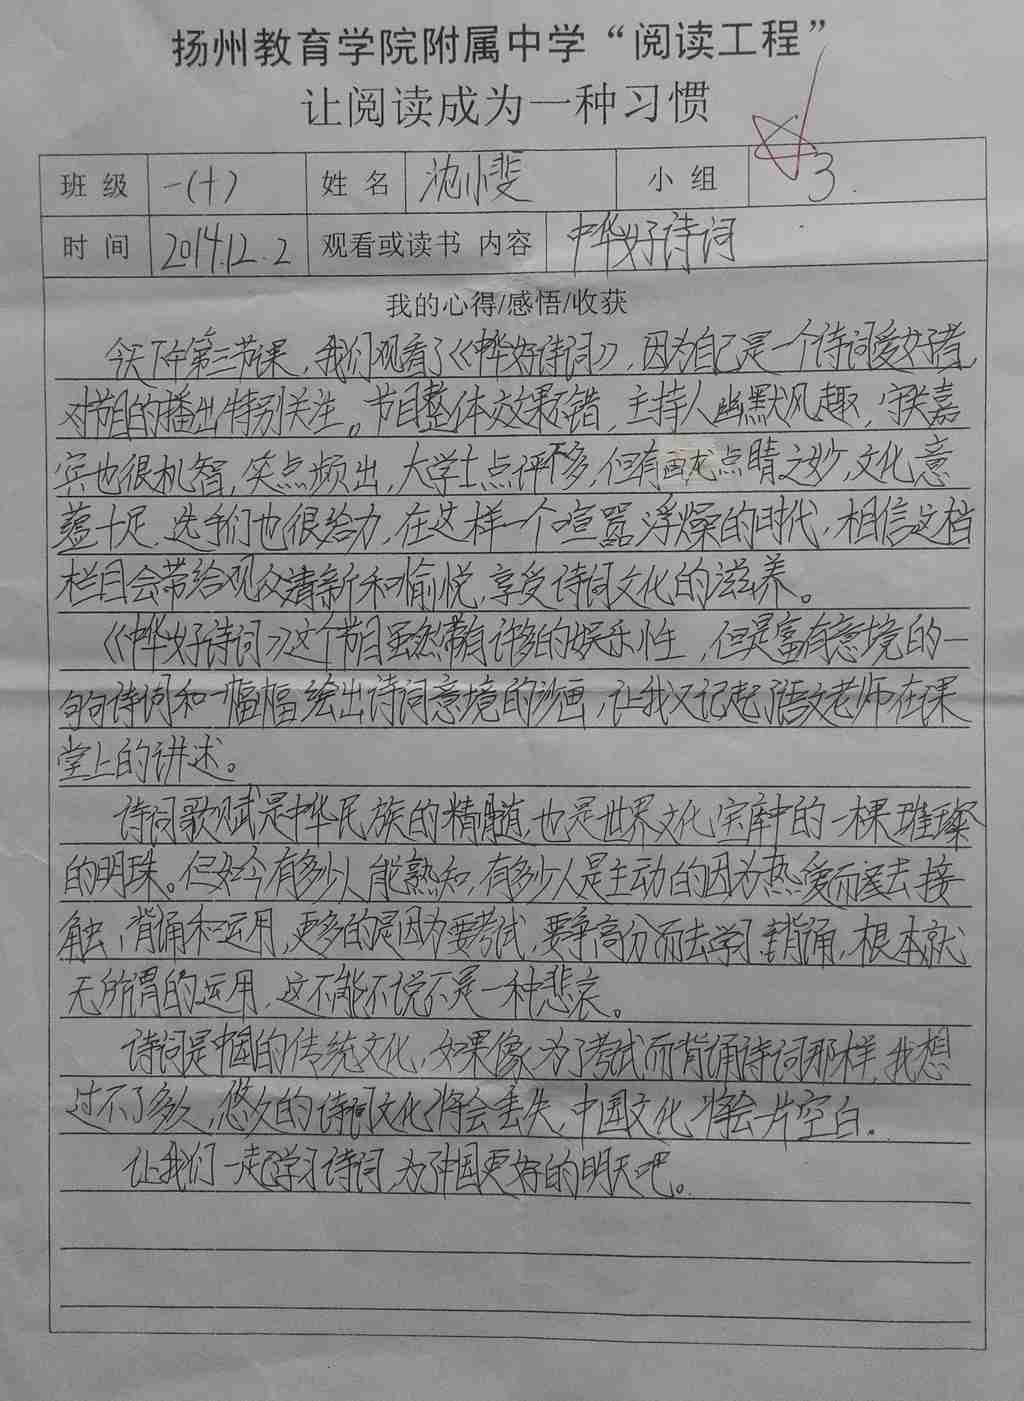 扬州教育学院附属中学“阅读工程”
让阅读成为一种习惯
班级 一(十) 姓名 沈小斐 小组 3
时间 2014.12.2 观看或读书内容 中华好诗词
我的心得/感悟/收获
今天下午第三节课，我们观看了《中华好诗词》，因为自己是一个诗词爱好者，
对节目的播出特别关注。节目整体效果不错，主持人幽默风趣，守关嘉
宾也很机智，笑点频出，大学士点评不多，但有画龙点睛之妙，文化意
蕴十足，选手们也很给力，在这样一个喧嚣浮燥的时代，相信这档
栏目会带给观众清新和愉悦，享受诗词文化的滋养。
《中华好诗词》这个节目虽然带有许多的娱乐性，但是富有意境的一
句句诗词和一幅幅绘出诗词意境的沙画，让我又记起了语文老师在课
堂上的讲述。
诗词歌赋是中华民族的精髓，也是世界文化宝库中的一棵璀璨
的明珠。但如今有多少人能熟知，有多少人是主动的因为热爱而去接
触，背诵和运用，更多的是因为要考试，要争高分而去学习背诵，根本就
无所谓的运用，这不能不说不是一种悲哀。
诗词是中国的传统文化，如果像为了考试而背诵诗词那样，我想
过不了多久，悠久的诗词文化将会丢失，中国文化将会一片空白。
让我们一起学习诗词，为了中国更好的明天吧。